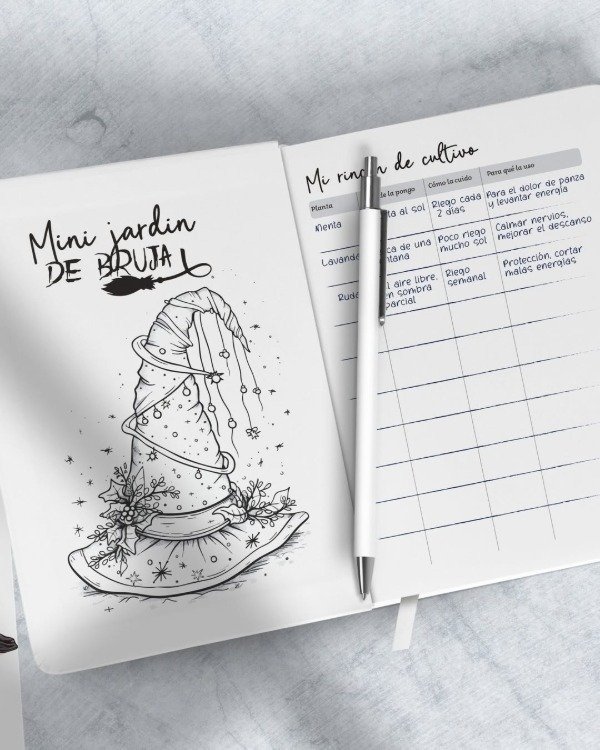 Mini jardin
DE BRUJA
Mi rincón de cultivo
Planta
la pongo
Cómo la cuido
Para qué la uso
Menta
al sol
Riego cada
2 días
Para el dolor de panza
y levantar energía
Lavanda
de una
Poco riego
mucho sol
Calmar nervios,
mejorar el descanso
Ruda
aire libre,
en sombra
parcial
Riego
semanal
Protección, cortar
malas energías